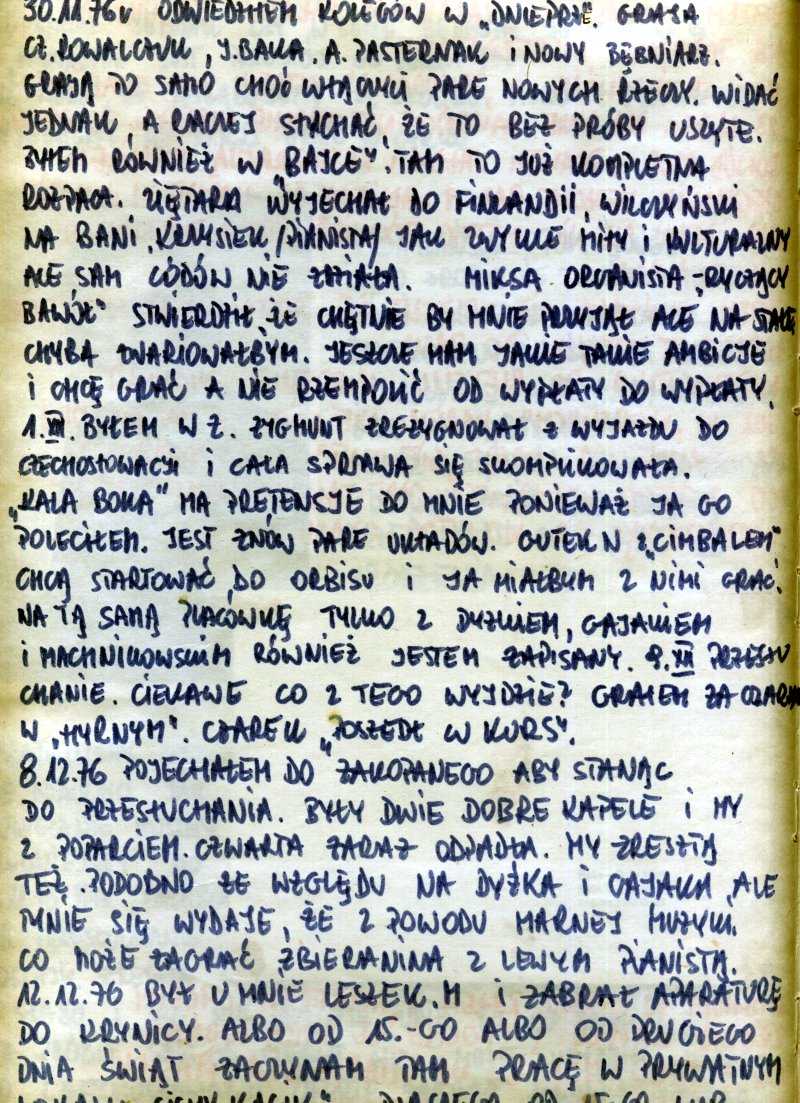 30.11.76r ODWIEDZIŁEM KOLEGÓW W „DNIEPRZE". GRAJA
CZ. KOWALCZUK, J. BAKA, A. PASTERNAK i NOWY BĘBNIARZ.
GRAJĄ TO SAMO CHOĆ WŁĄCZYLI PARE NOWYCH RZECZY. WIDAĆ
JEDNAK, A RACZEJ SŁYCHAĆ, ŻE TO BEZ PRÓBY USZYTE.
BYŁEM RÓWNIEŻ W „BAJCE". TAM TO JUŻ KOMPLETNA
ROZPACZ. ZIĘTARA WYJECHAŁ DO FINLANDII, WILCZYŃSKI
NA BANI, KRZYSIEK /PIANISTA/ JAK ZWYKLE MIŁY I KULTURALNY
ALE SAM CÓDÓW NIE ZDZIAŁA. MIKSA ORGANISTA „RYCZĄCY
BAWÓŁ" STWIERDZIŁ, ŻE CHĘTNIE BY MNIE PRZYJĄŁ ALE NA STAŁE
CHYBA ZWARIOWAŁBYM. JESZCZE MAM JAKIE TAKIE AMBICJE
i CHCĘ GRAĆ A NIE RZEMPOLIĆ OD WYPŁATY DO WYPŁATY.
1.XII. BYŁEM W Ż. ZYGMUNT ZREZYGNOWAŁ Z WYJAZDU DO
CZECHOSŁOWACJI i CAŁA SPRAWA SIĘ SKOMPLIKOWAŁA.
„KALA BOKA" MA PRETENSJE DO MNIE PONIEWAŻ JA GO
POLECIŁEM. JEST ZNÓW PARE UKŁADÓW. GUTEK N Z „CIMBALEM"
CHCĄ STARTOWAĆ DO ORBISU i JA MIAŁBYM Z NIMI GRAĆ.
NA TĄ SAMĄ PLACÓWKĘ TYLKO Z DYZKIEM, GAJAKIEM
i MACHNIKOWSKIM RÓWNIEŻ JESTEM ZAPISANY. 9.XII PRZESŁU
CHANIE. CIEKAWE CO Z TEGO WYJDZIE? GRAŁEM ZA CZARKA
W „HYRNYM". CZAREK „POSZEDŁ W KURS".
8.12.76 POJECHAŁEM DO ZAKOPANEGO ABY STANĄĆ
DO PRZESŁUCHANIA. BYŁY DWIE DOBRE KAPELE i MY
Z POPARCIEM. CZWARTA ZARAZ ODPADŁA. MY ZRESZTĄ
TEŻ. PODOBNO ZE WZGLĘDU NA DYŹKA i GAJAKA, ALE
MNIE SIĘ WYDAJE, ŻE Z POWODU MARNEJ MUZYKI.
CO MOŻE ZAGRAĆ ZBIERANINA Z LEWYM PIANISTĄ.
12.12.76 BYŁ U MNIE LESZEK.M i ZABRAŁ APARATURĘ
DO KRYNICY. ALBO OD 15.-GO ALBO OD DRUGIEGO
DNIA ŚWIĄT ZACZYNAM TAM PRACĘ W PRYWATNYM